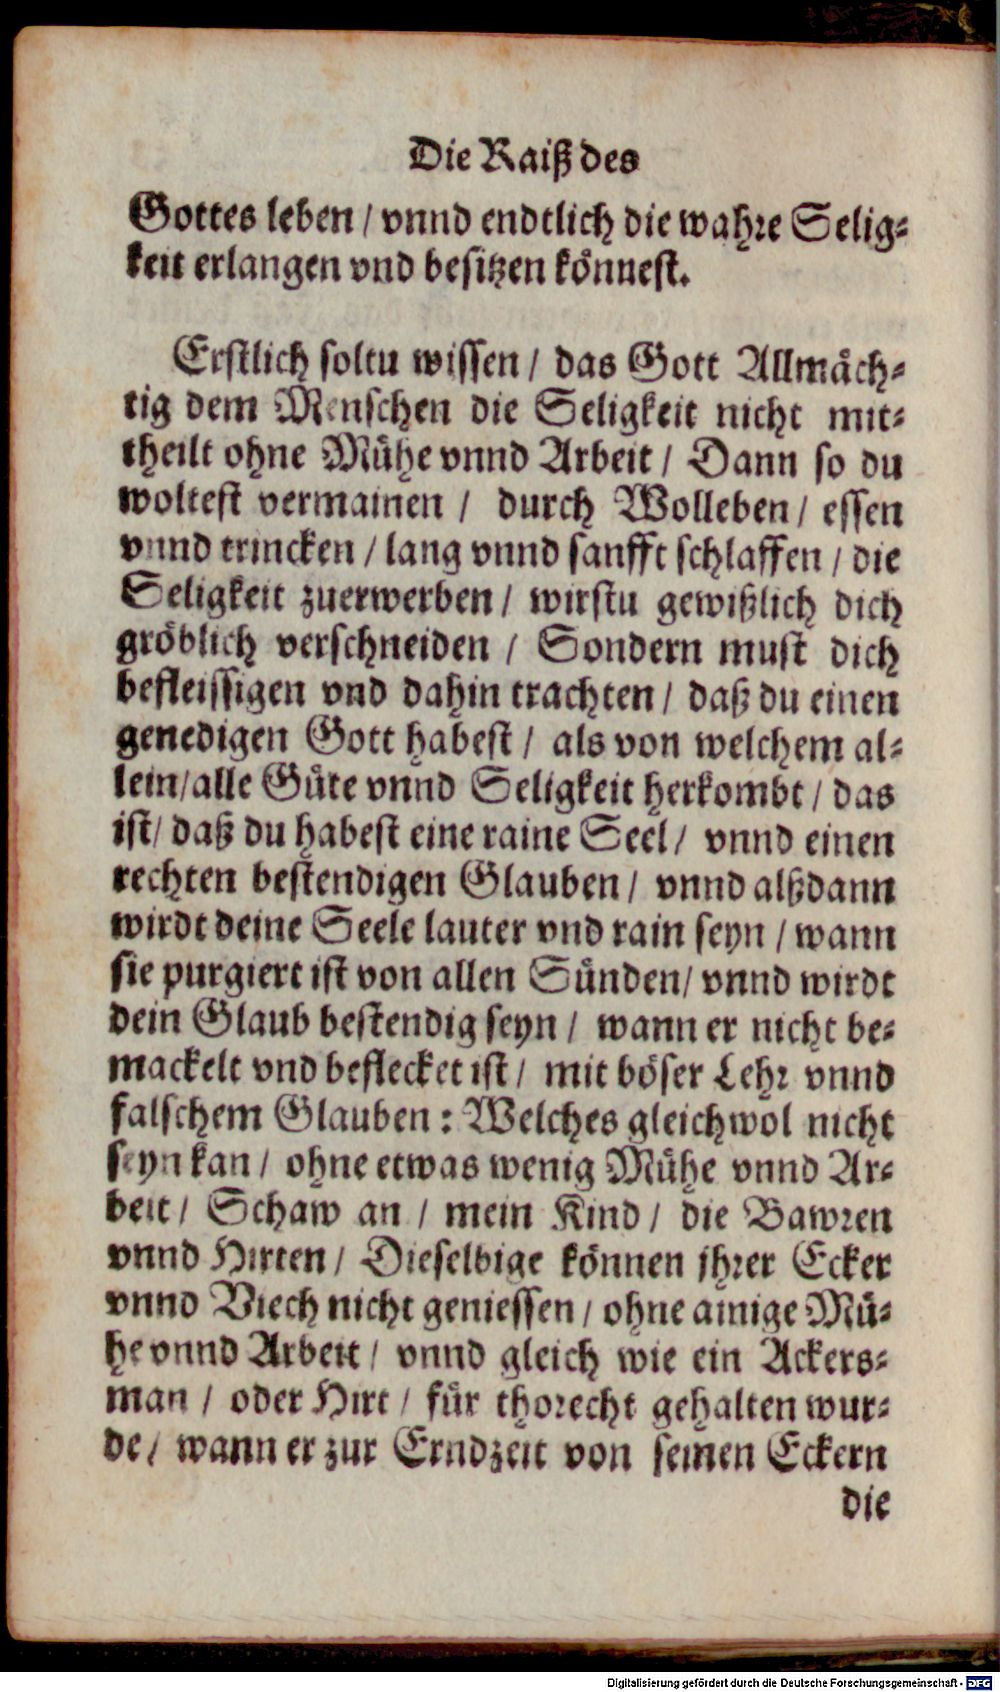 Die Raiß des
Gottes leben / vnnd endtlich die wahre Selig-
keit erlangen vnd besitzen könnest.
Erstlich soltu wissen / das Gott Allmäch-
tig dem Menschen die Seligkeit nicht mit-
theilt ohne Mühe vnnd Arbeit / Dann so du
woltest vermainen / durch Wolleben / essen
vnnd trincken / lang vnnd sanfft schlaffen / die
Seligkeit zuerwerben / wirstu gewißlich dich
gröblich verschneiden / Sondern must dich
befleissigen vnd dahin trachten / daß du einen
genedigen Gott habest / als von welchem al-
lein / alle Güte vnnd Seligkeit herkombt / das
ist / daß du habest eine raine Seel / vnnd einen
rechten bestendigen Glauben / vnnd alßdann
wirdt deine Seele lauter vnd rain seyn / wann
sie purgiert ist von allen Sünden / vnnd wirdt
dein Glaub bestendig seyn / wann er nicht be-
mackelt vnd beflecket ist / mit böser Lehr vnnd
falschem Glauben : Welches gleichwol nicht
seyn kan / ohne etwas wenig Mühe vnnd Ar-
beit / Schaw an / mein Kind / die Bawren
vnnd Hirten / Dieselbige können jhrer Ecker
vnnd Viech nicht geniessen / ohne ainige Mü-
he vnnd Arbeit / vnnd gleich wie ein Ackers-
man / oder Hirt / für thorecht gehalten wur-
de / wann er zur Erndzeit von seinen Eckern
die
Digitalisierung gefördert durch die Deutsche Forschungsgemeinschaft - DFG